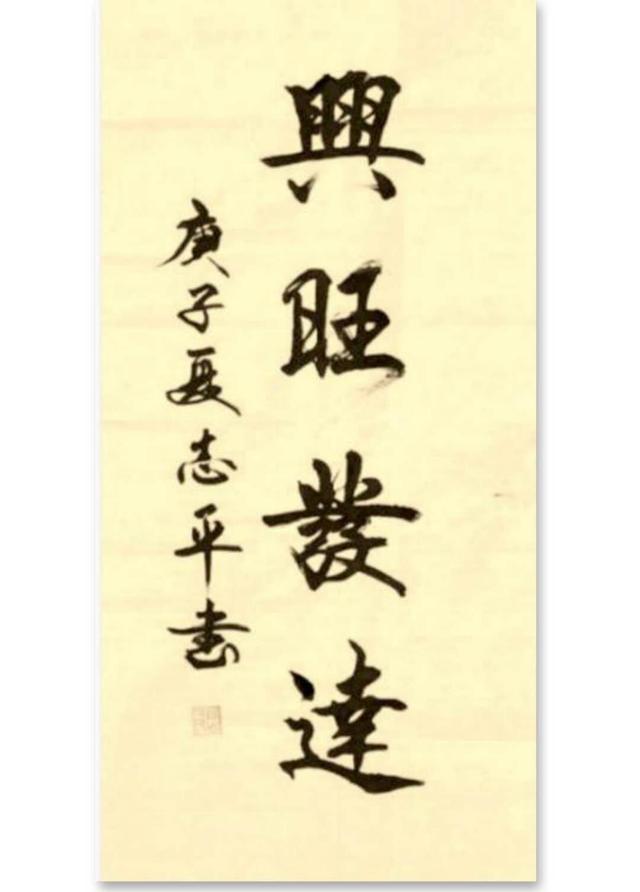 興旺發達
庚子夏志平書